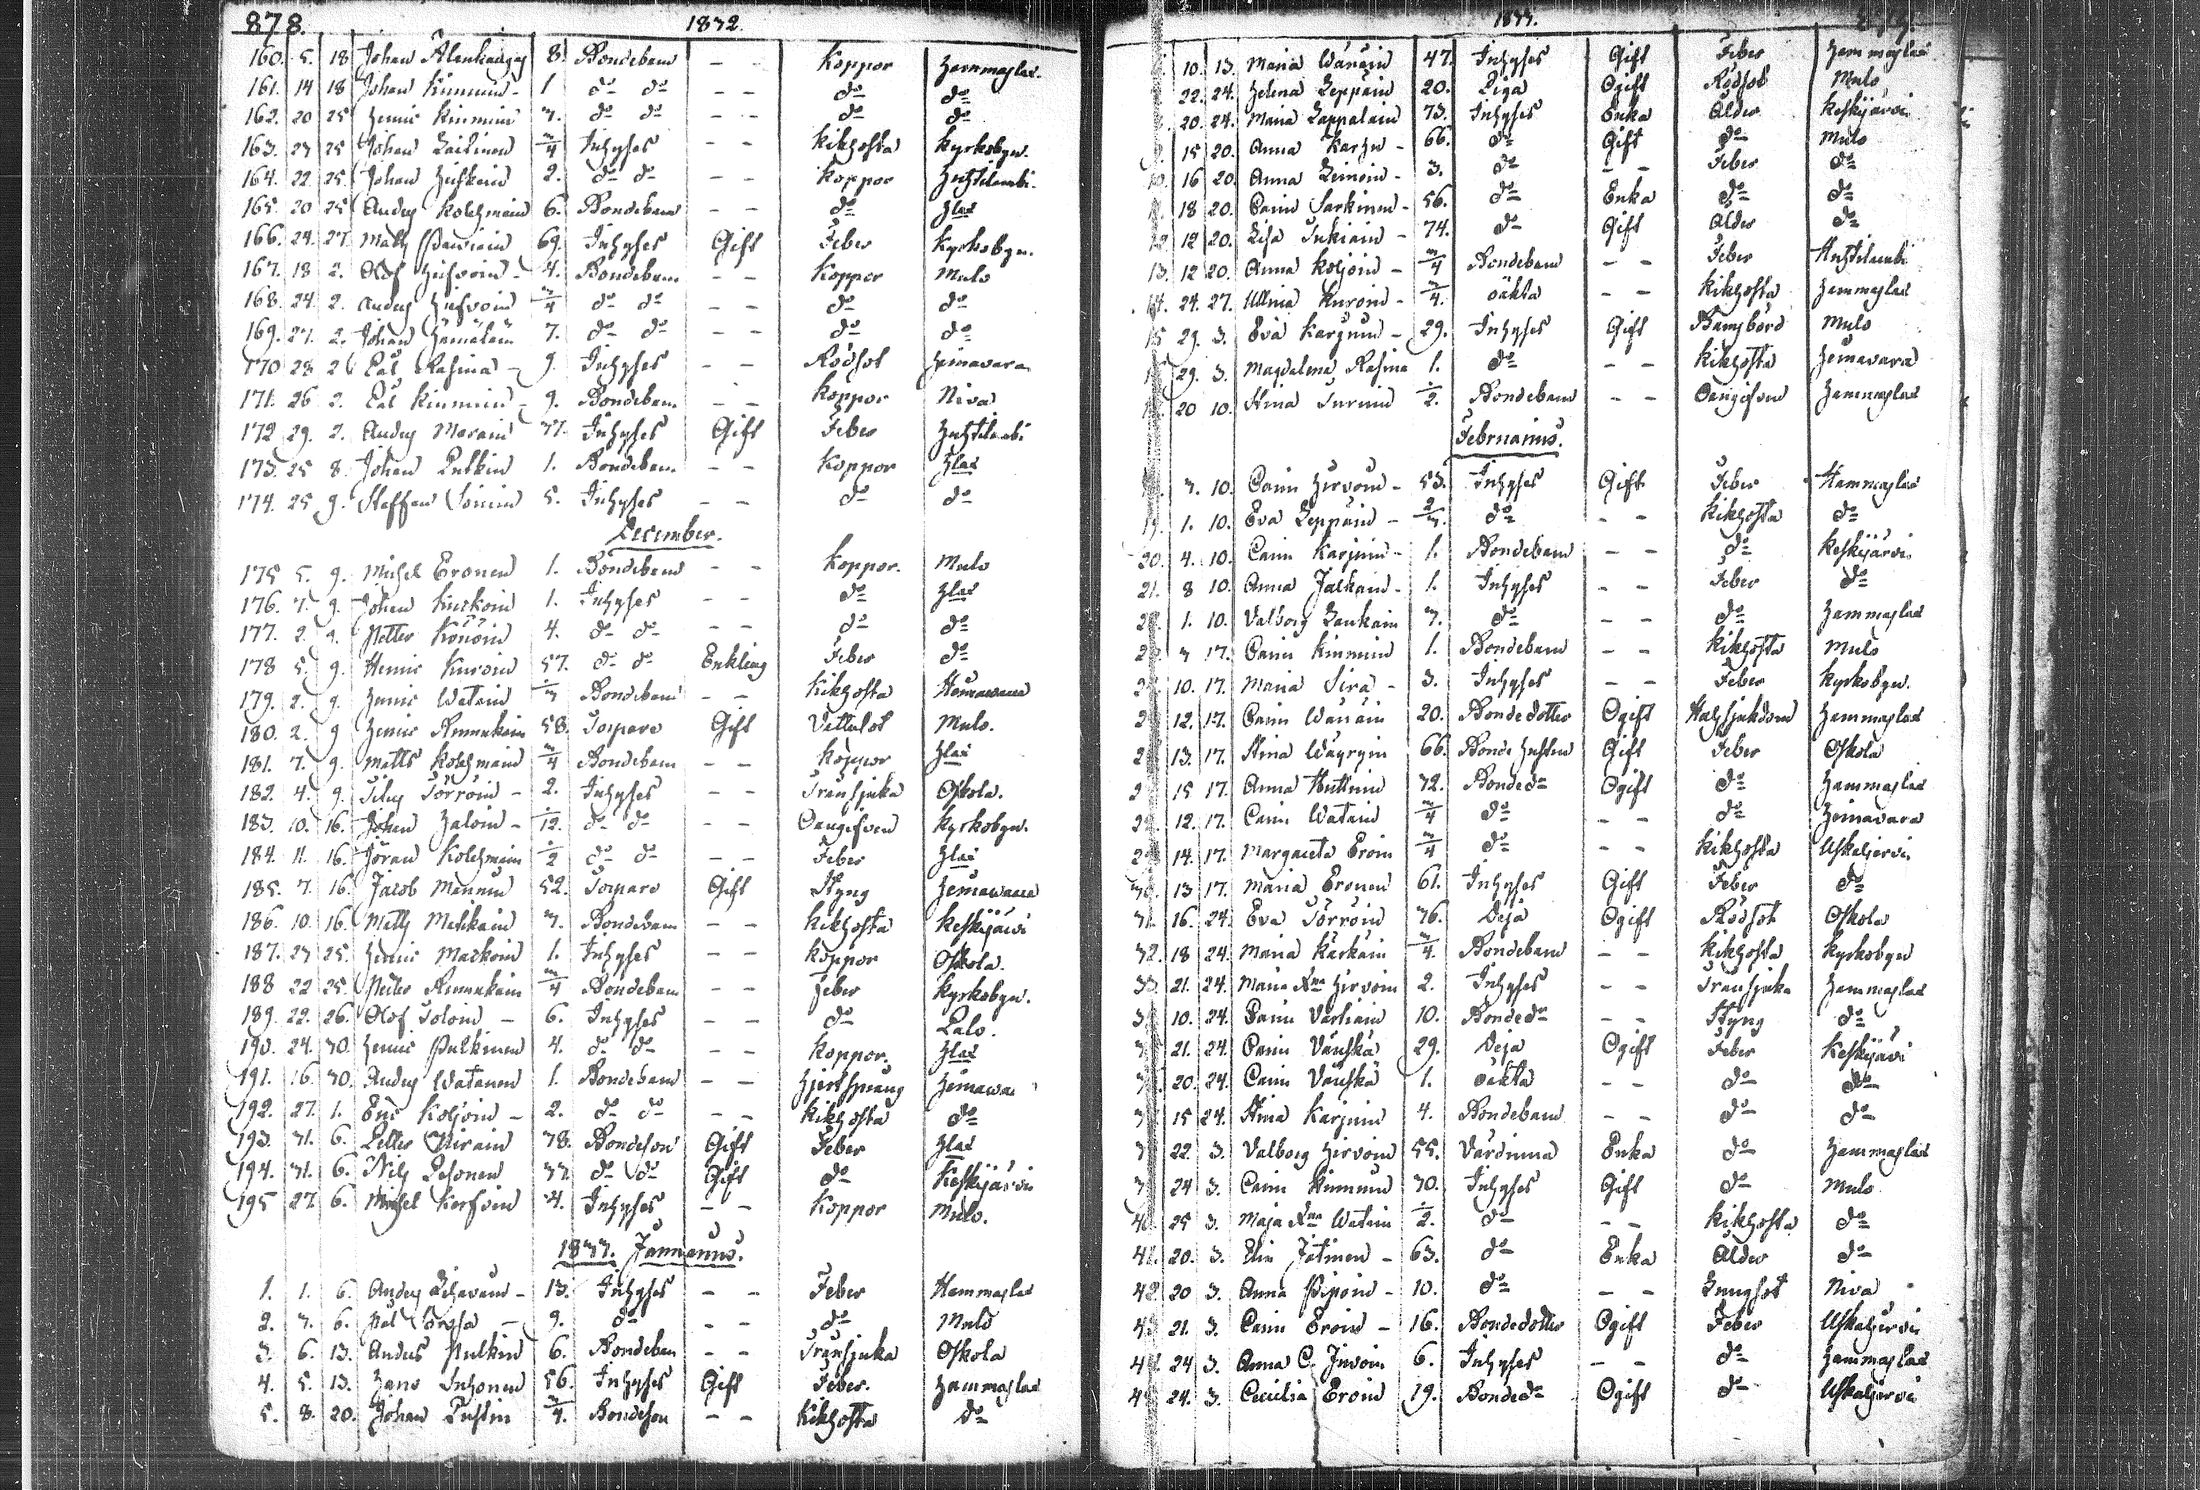 878. 1832.
160. 5. 18 Johan 8. Bondebarn - - Koppor Hammaslax.
161. 14 18 Johan Kinnuin - 1 do do - - do do
162. 20 25 Henric Kinnuin 3. do do - - do do
163. 23 25 Johan Laitinen 3/4 Inhyses - - Kikhosta Kyrkobyn.
164. 22 25. Johan 2. do do - - Koppor Huhtilambi.
165. 20 25 Anders Kolehmain 6. Bondebarn - - do Hlax
166. 24. 27. Matts 69. Inhyses Gift Feber Kyrkobyn.
167. 18 2. Olof Hirvoin - 4. Bondebarn - - Koppor Mulo
168. 24 2. Anders Hirvoin 3/4 do do - - do do
169. 27. 2. Johan Hämäläin 7. do do - - do do
170 28 2 Pål Rasina - 9. Inhyses - - Rödsot Heinävara
171. 26 2. Pål Kinnuin - 9. Bondebarn - - Koppor Niva
172 29. 2. Anders 37. Inhyses Gift Feber Huhtilambi
173. 25 8. Johan 1. Bondebarn - - Koppor Hlax
174. 25 9. Staffan Simin 5. Inhyses - - do do
December.
175 5. 9. Michel Eronen 1. Bondebarn - - Koppor. Mulo
176. 7. 9. Johan 1. Inhyses - - do Hlax
177. 2. 9. Petter Könöin 4. do do - - do do
178 5. 9. Henric Kuroin 57. do do Enkling Feber do
179. 2. 9. Henric Watain Bondebarn - - Kikhosta Heinävaara
180. 2. 9 Henric 58. Torpare Gift Vattusot Mulo.
181. 7. 9. Matts Kolehmain 3/4 Bondebarn - - Koppor Hlax
182. 4. 9. Törröin - 2. Inhyses - - Transjuka Oskola.
183. 10. 16. Johan Haloin - 1/12. do do - - Oangifven Kyrkobyn.
184. 11. 16. Jöran Kolehmain 1/2 do do - - Feber Hlax
185. 7. 16. Jacob Mannin 52. Torpare Gift Styng Heinävaara
186. 10 16. Matts 3. Bondebarn - - Kikhosta Keskijärvi
187. 23 25. Henric Markoin 1. Inhyses - - Koppor Oskola.
188 22 25. Petter 3/4 Bondebarn - - Feber Kyrkobyn.
189. 22. 26. Olof Toloin - 6. Inhyses - - do
190. 24. 30. Henric Pulkinen 4. do do - - Koppor. Hlax
191. 16. 30. Anders Watanen 1. Bondebarn - - Hjertsprång
192. 27. 1. Eric Koljoin - 2. do do - - Kikhosta do
193. 31. 6. Petter 38. Bondeson Gift Feber Hlax
194. 31. 6. Nils Pesonen 33 do do Gift do Keskijärvi
195 27. 6. Michel Korhoin 34. Inhyses - - Koppor Mulo.
1833. Januarius.
1. 1. 6. Anders - 13. Inhyses - - Feber Hammaslax
2. 3. 6. Pål - 9. do - - do Mulo
3. 6. 13. Anders Pulkin 6. Bondebarn - - Transjuka Oskola
4. 5. 13. Hans Inhonen 56. Inhyses Gift Feber. Hammaslax
5. 8. 20. Johan 3/4. Bondeson - - Kikhosta do
1833.
10. 13. Maria Wänäin 47. Inhyses Gift Feber Hammaslax
22. 24. Helena Leppäin 20. Piga Ogift Rödsot Mulo
20. 24. Maria Lappalain 73. Inhyses Enka Ålder Keskijärvi
15 20. Anna - 66. do Gift do Mulo
10. 16 20. Anna Leinoin - 3. do - - Feber do
18 20. Carin Sarkinen - 56. do Enka do do
12 12 20. Lisa Tukiain - 74. do Gift Ålder do
13. 12 20. Anna Koljoin - 3/4 Bondebarn - - Feber Huhtilambi
14. 24. 27. Ulrica Kuroin - 3/4. oäkta - - Kikhosta Hammaslax
15 29. 3. Eva Karjuin - 29. Inhyses Gift Barnsbörd Mulo
29. 3. Magdalena Rasina 1. do - - Kikhosta Heinävara
20 10. Stina Turuin 1/2. Bondebarn - - Oangifven Hammaslax
Februarius.
7. 10. Carin Hirvoin - 53. Inhyses Gift Feber Hammaslax
19. 1. 10. Eva Leppäin - 2/3. do - - Kikhosta do
20. 4. 10. Carin Karjuin - 1. Bondebarn - - do Keskijärvi
21. 8 10. Anna Jalkain - 1. Inhyses - - Feber do
1. 10. Valborg Laukain 3. do - - do Hammaslax
3 17. Carin Kinnuin 1. Bondebarn - - Kikhosta Mulo
10. 17. Maria Sirä - 3. Inhyses - - Feber Kyrkobyn.
12. 17. Carin Wänäin 20. Bondedotter Ogift Halssjukdom Hammaslax
13. 17. Stina Wäyryin 66. Bonde hustru Gift Feber Oskola
15 17. Anna Huttuin 72. Bonde do Ogift do Hammaslax
12. 17. Carin Watain 3/4 do - - do Heinävara
14. 17. Margareta Eroin 3/4 do - - Kikhosta Uskaljärvi
30. 13 17. Maria Eronen 61. Inhyses Gift Feber do
31. 16. 24. Eva Törröin 76. Deja Ogift Rödsot Oskola
32. 18 24. Maria Kärkäin 3/4. Bondebarn - - Kikhosta Kyrkobyn
33 21. 24. Maria Xna Hirvoin 2. Inhyses - - Transjuka Hammaslax
10. 24. Carin 10. Bonde do - - Styng do
21. 24. Carin Vänskä 29. Deja Ogift Feber Keskijärvi
20. 24. Carin Vänskä 1. oäkta - - do do
15 24. Stina Karjuin 4. Bondebarn - - do do
22. 3. Valborg Hirvoin 55. Värdinna Enka do Hammaslax
24 3. Carin Kinnunen 30. Inhyses Gift do Mulo
40. 25 3. Maja Xna Watain 1/2. do - - Kikhosta do
41. 20. 3. Elin Jetinen - 63. do Enka Ålder do
42 20 3. Anna Piipoin - 10. do - - Lungsot Niva
43 21. 3. Carin Eroin - 16. Bondedotter Ogift Feber Uskaljärvi
44. 24 3. Anna C. 6. Inhyses - - do Hammaslax
45 24. 3. Cecilia Eroin 19. Bonde do Ogift do Uskaljärvi